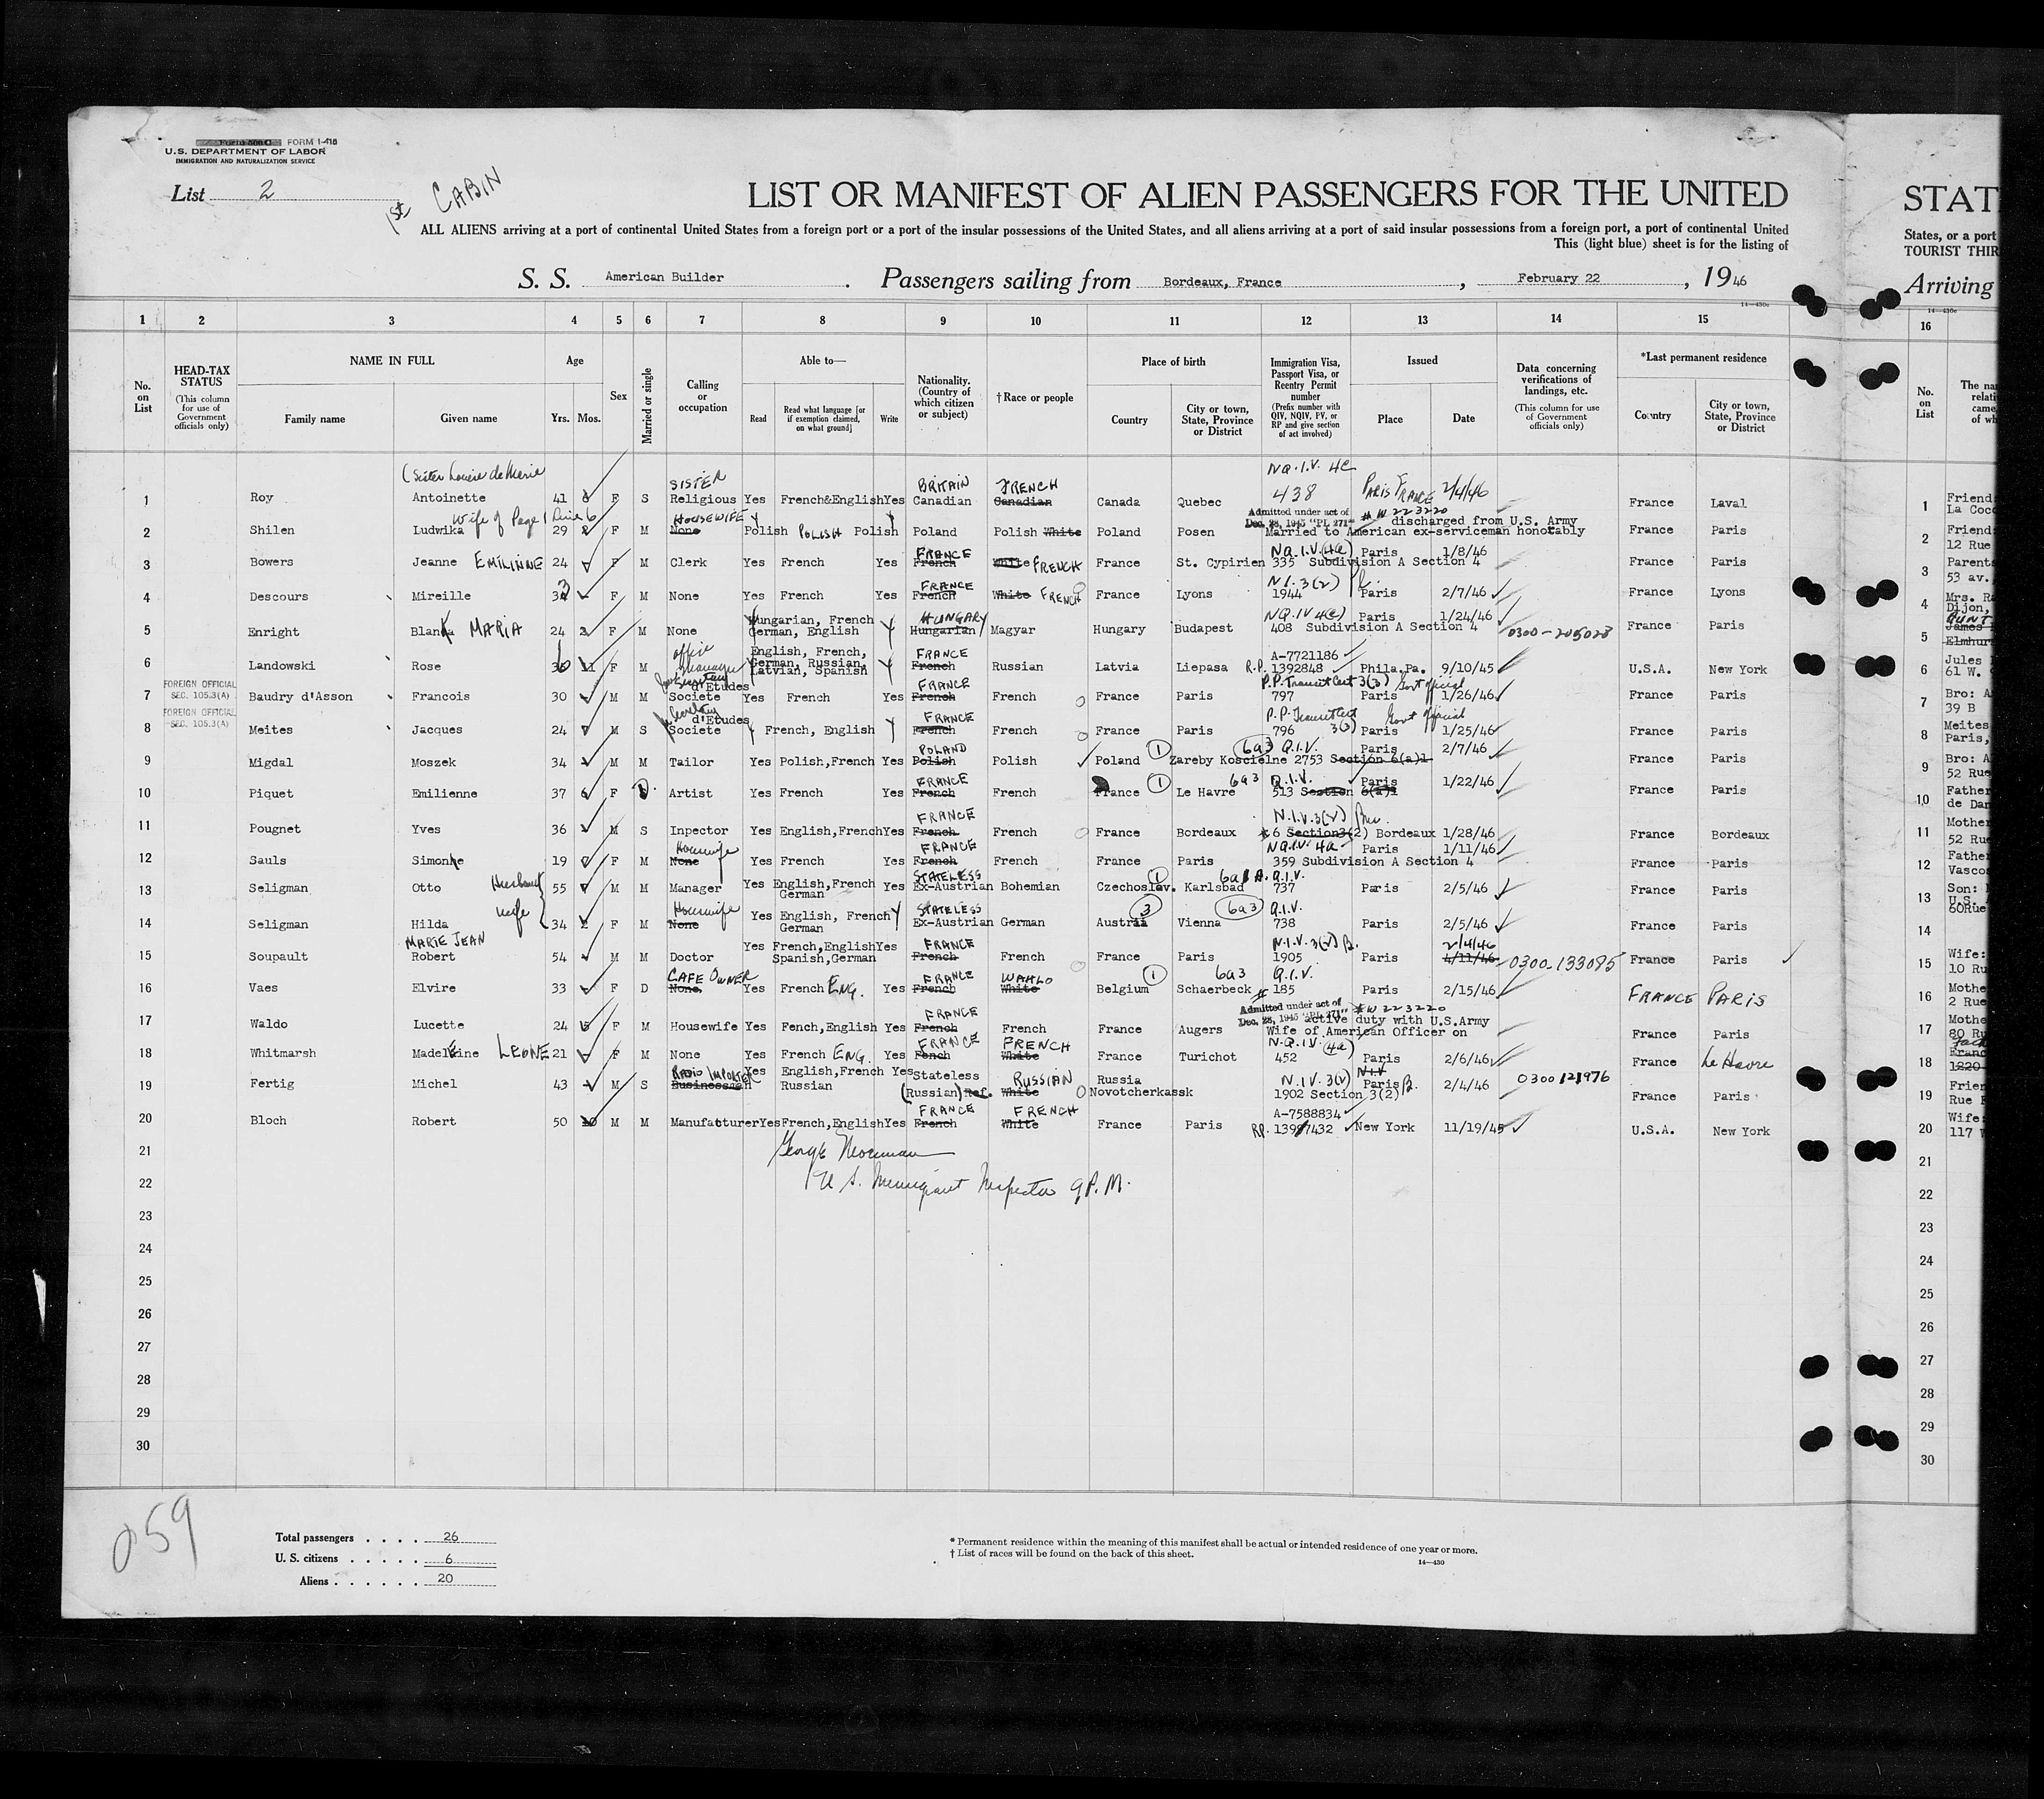 Form 500 C FORM I-418
U.S. DEPARTMENT OF LABOR
IMMIGRATION AND NATURALIZATION SERVICE
List 2
1st CABIN
LIST OR MANIFEST OF ALIEN PASSENGERS FOR THE UNITED
ALL ALIENS arriving at a port of continental United States from a foreign port or a port of the insular possessions of the United States, and all aliens arriving at a port of said insular possessions from a foreign port, a port of continental United
This (light blue) sheet is for the listing of
S. S. American Builder . Passengers sailing from Bordeaux, France , February 22 , 19 46
14-430c
1 2 3 4 5 6 7 8 9 10 11 12 13 14 15
No. on List
HEAD-TAX STATUS (This column for use of Government officials only)
NAME IN FULL Family name Given name
Age Yrs. Mos.
Sex
Married or single
Calling or occupation
Able to— Read Read what language [or if exemption claimed, on what ground] Write
Nationality. (Country of which citizen or subject)
†Race or people
Place of birth Country City or town, State, Province or District
Immigration Visa, Passport Visa, or Reentry Permit number (Prefix number with QIV, NQIV, PV, or RP and give section of act involved)
Issued Place Date
Data concerning verifications of landings, etc. (This column for use of Government officials only)
*Last permanent residence Country City or town, State, Province or District
(Sister Louise de Marie SISTER BRITAIN FRENCH NQ.I.V. 4e
1 Roy Antoinette 41 F S Religious Yes French&English Yes Canadian Canadian Canada Quebec 438 PARIS FRANCE 2/4/46 France Laval
Wife of Page 1 Line 6 HOUSEWIFE Admitted under act of Dec. 28, 1945 "PL 271" # W 223220 discharged from U.S. Army
2 Shilen Ludwika 29 F M None Polish POLISH Polish Poland Polish White Poland Posen Married to American ex-serviceman honorably France Paris
FRANCE NQ.I.V. (4a) Paris 1/8/46
3 Bowers Jeanne EMILINNE 24 F M Clerk Yes French Yes French White FRENCH France St. Cypirien 335 Subdivision A Section 4 France Paris
FRANCE N.I. 3(2)
4 Descours Mireille 33 F M None Yes French Yes French White FRENCH France Lyons 1944 Paris 2/7/46 France Lyons
HUNGARY NQ.IV 4(e) Paris 1/24/46
5 Enright Blanka MARIA 24 F M None Hungarian, French German, English Y Hungarian Magyar Hungary Budapest 408 Subdivision A Section 4 0300-205028 France Paris
office manager English, French, FRANCE A-7721186
6 Landowski Rose 36 11 F M German, Russian, Latvian, Spanish Y French Russian Latvia Liepasa R.P. 1392848 Phila.Pa. 9/10/45 U.S.A. New York
FOREIGN OFFICIAL SEC. 105.3(A) d'Etudes FRANCE P.P. Transit Cert 3(3) Govt official
7 Baudry d'Asson Francois 30 M M Societe Yes French Yes French French France Paris 797 Paris 1/26/46 France Paris
FOREIGN OFFICIAL SEC. 105.3(A) d'Etudes FRANCE P.P. Transit Cert 3(3) Govt official
8 Meites Jacques 24 M S Societe Y French, English Y French French France Paris 796 Paris 1/25/46 France Paris
POLAND 1 6a3 Q.I.V. Paris 2/7/46
9 Migdal Moszek 34 M M Tailor Yes Polish,French Yes Polish Polish Poland Zareby Koscielne 2753 Section 6(a)1 France Paris
FRANCE 1 6a3 Q.I.V. Paris 1/22/46
10 Piquet Emilienne 37 6 F D Artist Yes French Yes French French France Le Havre 513 Section 6(a)1 France Paris
FRANCE N.I.V. 3(2)
11 Pougnet Yves 36 M S Inpector Yes English,French Yes French French France Bordeaux #6 Section3(2) Bordeaux 1/28/46 France Bordeaux
Housewife FRANCE NQ.IV. 4a Paris 1/11/46
12 Sauls Simonne 19 F M None Yes French Yes French French France Paris 359 Subdivision A Section 4 France Paris
Husband STATELESS 1 6a1A. Q.I.V.
13 Seligman Otto 55 M M Manager Yes English,French German Yes Ex-Austrian Bohemian Czechoslov. Karlsbad 737 Paris 2/5/46 France Paris
wife Housewife STATELESS 3 6a3 Q.I.V.
14 Seligman Hilda 34 F M None Yes English, French German Y Ex-Austrian German Austria Vienna 738 Paris 2/5/46 France Paris
MARIE JEAN FRANCE N.I.V. 3(2) B. 2/4/46
15 Soupault Robert 54 M M Doctor Yes French,English Spanish,German Yes French French France Paris 1905 Paris 4/11/46 0300-133085 France Paris
CAFE OWNER FRANCE WALLO 1 6a3 Q.I.V.
16 Vaes Elvire 33 F D None. Yes French ENG. Yes French White Belgium Schaerbeck # 185 Paris 2/15/46 FRANCE PARIS
FRANCE Admitted under act of Dec. 28, 1945 "PL 271" # W 223220 active duty with U.S.Army
17 Waldo Lucette 24 5 F M Housewife Yes Fench,English Yes French French France Augers Wife of American Officer on France Paris
FRANCE FRENCH N.Q.IV. (4a)
18 Whitmarsh Madeleine LEONE 21 F M None Yes French ENG. Yes Fench White France Turichot 452 Paris 2/6/46 France Le Havre
RADIO IMPORTER N.I.V. 3(2) N.I.V
19 Fertig Michel 43 M S Businessman Yes English,French Russian Yes Stateless (Russian) Ref. RUSSIAN White Russia Novotcherkassk 1902 Section 3(2) Paris B. 2/4/46 0300121976 France Paris
FRANCE FRENCH A-7588834
20 Bloch Robert 50 10 M M Manufacturer Yes French,English Yes French White France Paris RP. 1397432 New York 11/19/45 U.S.A. New York
21 George Neuman
22 U S. Immigrant Inspector 9 P.M.
23
24
25
26
27
28
29
30
059
Total passengers . . . . 26
U. S. citizens . . . . . 6
Aliens . . . . . . 20
* Permanent residence within the meaning of this manifest shall be actual or intended residence of one year or more.
† List of races will be found on the back of this sheet.
14-430
STAT
States, or a port
TOURIST THIR
Arriving
14-430c
16
No. on List
The na
relati
came
of wh
1 Friend
La Coc
2 Friend
12 Rue
3 Parent
53 av.
4 Mrs. R
Dijon,
5 AUNT
James
Elmhur
6 Jules
61 W.
7 Bro: A
39 B
8 Meites
Paris,
9 Bro: A
52 Rue
10 Father
de Dan
11 Mother
52 Rue
12 Father
Vasco
13 Son:
U.S.
60Rue
14
15 Wife:
10 Ru
16 Mothe
2 Rue
17 Mothe
80 Ru
18 Franc
1220
19 Frien
Rue
20 Wife:
117
21
22
23
24
25
26
27
28
29
30